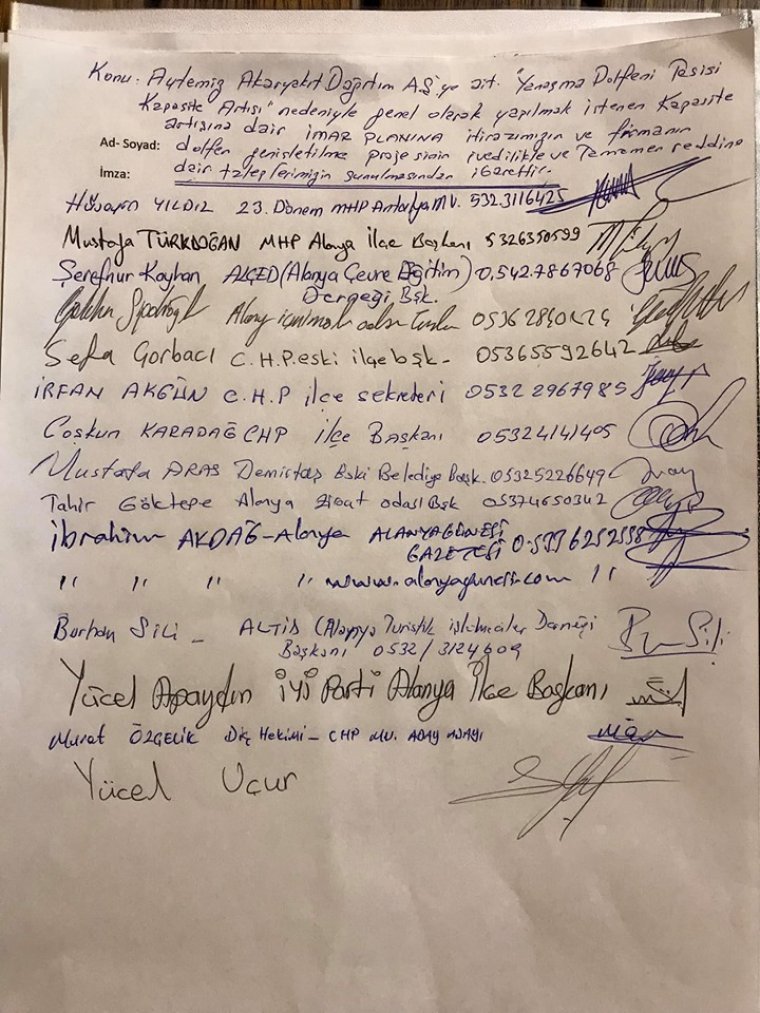 Konu: Aytemiz Akaryakıt Dağıtım A.Ş'ye ait. "Yanaşma Dolfeni Tesisi
Kapasite Artışı" nedeniyle genel olarak yapılmak istenen Kapasite
artışına dair İMAR PLANINA itirazımızın ve firmanın
Ad- Soyad: dolfen genişletilme projesinin ivedilikle ve Tamamen reddine
İmza: dair taleplerimizin sunulmasından ibarettir.
Hüseyin YILDIZ 23. Dönem MHP Antalya MV. 532.3116425
Mustafa TÜRKDOĞAN MHP Alanya İlçe Başkanı 5326350599
Şerefnur Kayhan ALÇED (Alanya Çevre Eğitim) 0.542.7867068
Derneği Bşk.
Sefa Gorbacı C.H.P. eski ilçe bşk - 05365592642
İRFAN AKGÜN C.H.P ilçe sekreteri 0532 2967985
Coşkun KARADAĞ CHP İlçe Başkanı 05324141405
Mustafa ARAS Demirtaş Eski Belediye Başk. 05325226649
Tahir Göktepe Alanya Ziraat odası Bşk 05374650342
İbrahim AKDAĞ - Alanya ALANYAGÜNEŞİ
GAZETESİ 0.5336252558
" " " " www.alanyagunesi.com "
Burhan Sili - ALTİD (Alanya Turistik işletmeciler Derneği
Başkanı 0532/3124609
Yücel Apaydın İYİ Parti Alanya İlçe Başkanı
Murat ÖZÇELİK Diş Hekimi - CHP MV. ADAY ADAYI
Yücel Uçur